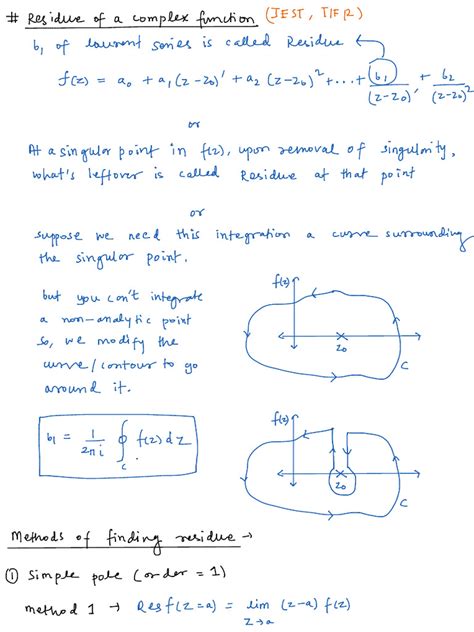 # Residue of a complex function (JEST, TIFR)
b₁ of laurent series is called Residue
f(z) = a₀ + a₁(z-z₀)' + a₂(z-z₀)² + ... + b₁/(z-z₀)' + b₂/(z-z₀)²
or
At a singular point in f(z), upon removal of singularity,
what's leftover is called Residue at that point
or
suppose we need this integration a curve surrounding
the singular point.
but you can't integrate
a non-analytic point
so, we modify the
curve/contour to go
around it.
f(z)
z₀
C
b₁ = 1/2πi ∮c f(z) dz
f(z)
z₀
C
Methods of finding residue →
① Simple pole (order = 1)
method 1 → Res f(z=a) = lim z→a (z-a) f(z)